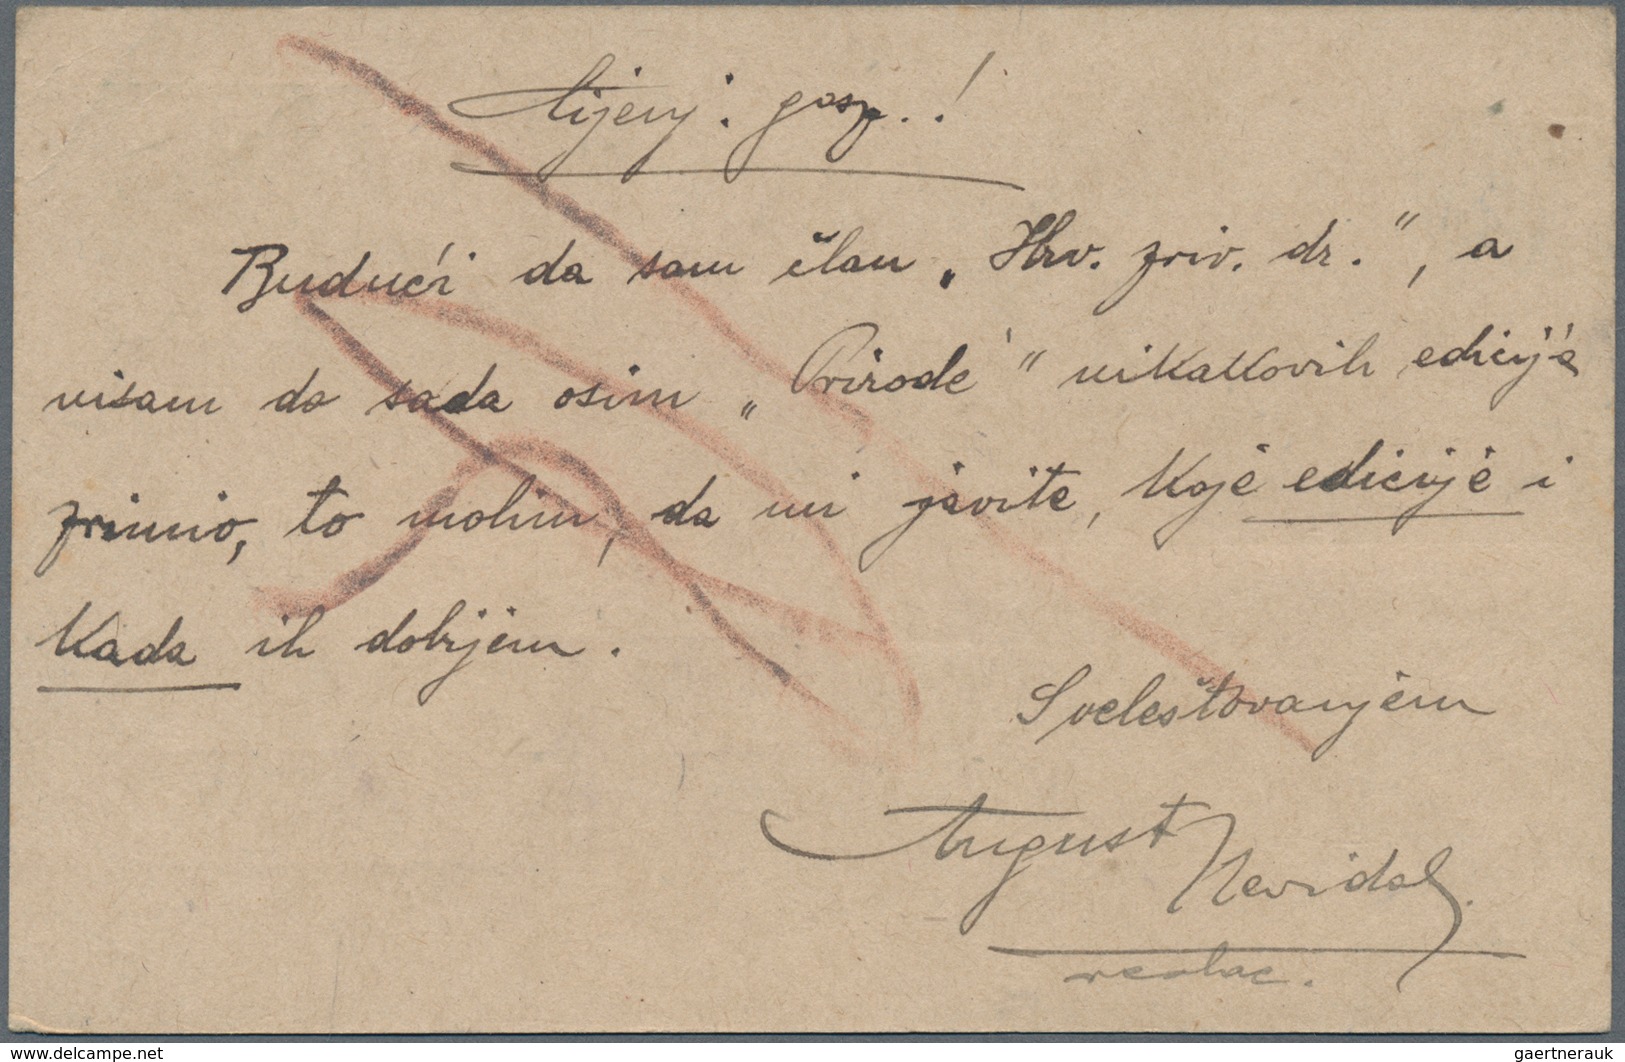 Cijenj. gosp.!
Budući da sam član „Hrv. priv. dr.", a
nisam do sada osim „Prirode" nikakovih edicija
primio, to molim, da mi javite, koje edicije i
kada ih dobijem.
S veleštovanjem
August
Nevidal
www.delcampe.net
gaertnerauk